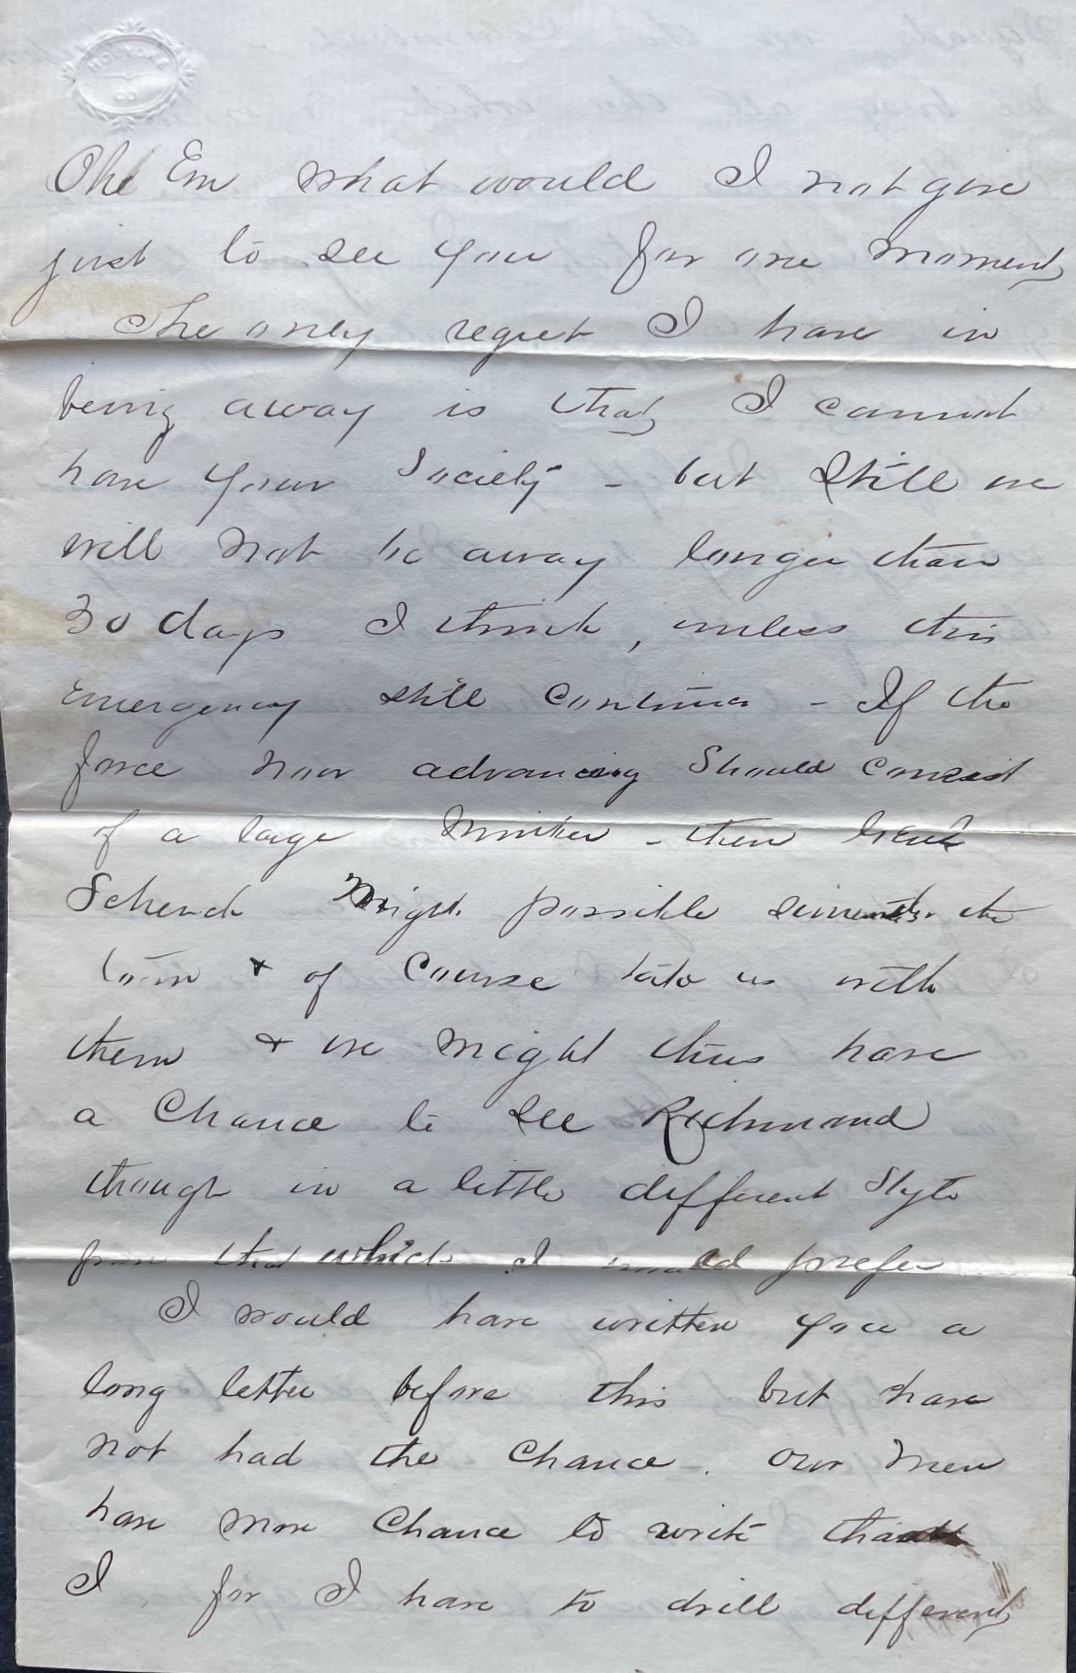 Oh Em what would I not give
just to see you for one moment
The only regret I have in
being away is that I cannot
have your Society - but still we
will not be away longer than
30 days I think, unless this
emergency still continues - If the
force now advancing Should consist
of a large number - then Genl
Schenck might possible surrender the
town & of Course take us with
them & we might thus have
a Chance to see Richmond
though in a little different Style
from that which I would prefer
I would have written you a
long letter before this but have
not had the Chance. Our men
have more Chance to write than
I for I have to drill different